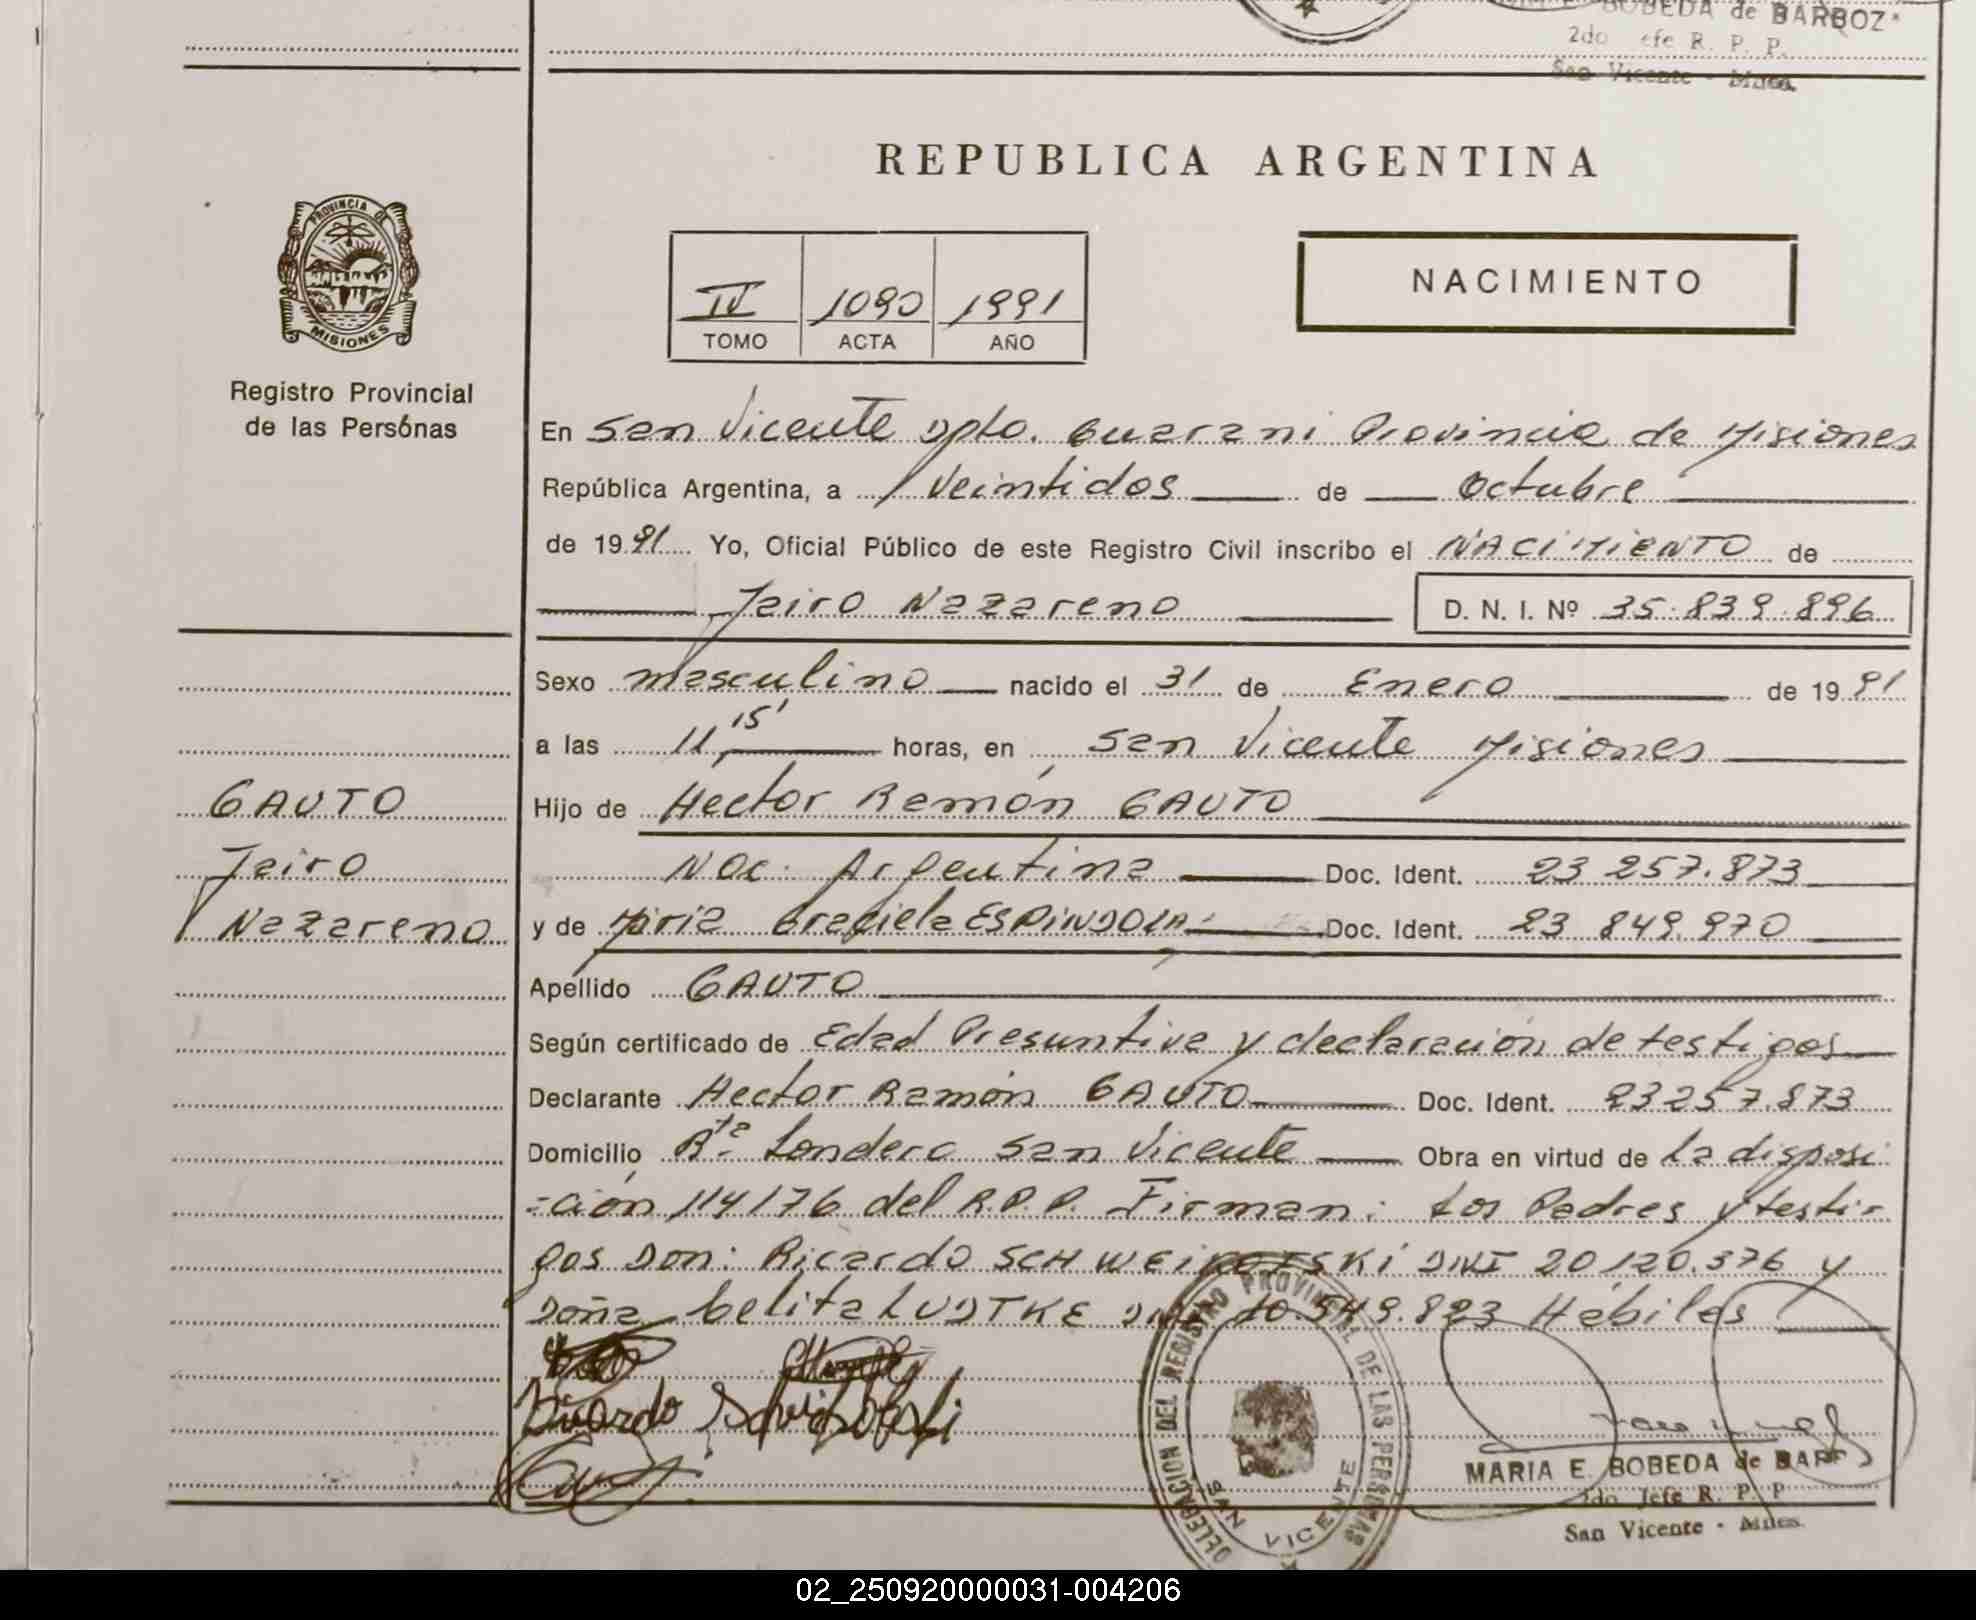 BOBEDA de BARBOZ
2do efe R. P. P.
San Vicente - Mnes.
REPUBLICA ARGENTINA
PROVINCIA DE
MISIONES
Registro Provincial
de las Personas
IV 1090 1991
TOMO ACTA AÑO
NACIMIENTO
En San Vicente Dpto. Guarani Provincia de Misiones
República Argentina, a Veintidos de Octubre
de 1991 Yo, Oficial Público de este Registro Civil inscribo el NACIMIENTO de
Jairo Nazareno D. N. I. Nº 35.839.896
Sexo masculino nacido el 31 de Enero de 1991
a las 11,15' horas, en San Vicente Misiones
GAUTO
Hijo de Hector Ramón GAUTO
Jairo
Nac. Argentina Doc. Ident. 23 257.873
Nazareno
y de Miria Graciela ESPINDOLA Doc. Ident. 23 849.970
Apellido GAUTO
Según certificado de Edad Presuntiva y declaración de testigos
Declarante Hector Ramón GAUTO Doc. Ident. 23 257.873
Domicilio Rta. Londero San Vicente Obra en virtud de la disposi
=ción 114/76 del R.P.P. Firman: Los Padres y testi-
gos Don: Ricardo DNI 20 120.376 y
Doña Gelita LUDTKE DNI 10.549.823 Hábiles
Ricardo
DELEGACION DEL REGISTRO PROVINCIAL DE LAS PERSONAS
SAN VICENTE
MARIA E. BOBEDA de BARB
2do Jefe R. P. P
San Vicente - Mnes.
02_250920000031-004206